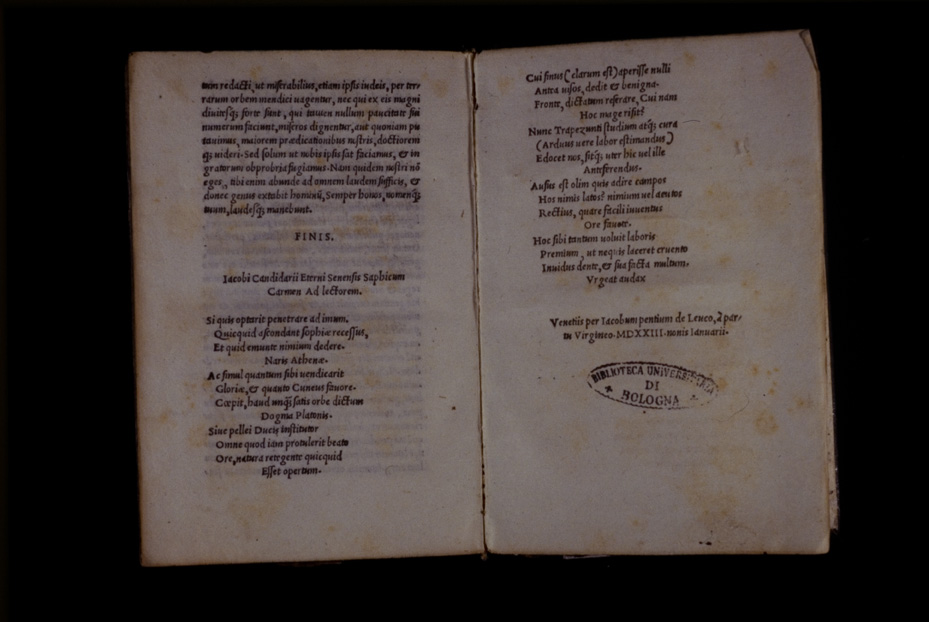 tum redacti, ut miserabilius, etiam ipsis iudeis, per ter-
rarum orbem mendici uagentur, nec qui ex eis magni
diuitesq; forte sunt, qui tamen nullum paucitate sui
numerum faciunt, miseros dignentur, aut quoniam pu
tauimus, maiorem prædicationibus nostris, doctiorem
q; uideri. Sed solum ut nobis ipsis sat faciamus, & in
gratorum obprobria fugiamus. Nam quidem nostri nō
eges, tibi enim abunde ad omnem laudem sufficis, &
donec genus extabit hominū, Semper honos, nomenq;
tuum, laudesq; manebunt.
FINIS.
Iacobi Candidarii Eterni Senensis Saphicum
Carmen Ad lectorem.
Si quis optarit penetrare ad imum,
Quicquid ascondant sophiæ recessus,
Et quid emuncte nimium dedere.
Naris Athenæ.
Ac simul quantum sibi uendicarit
Gloriæ, & quanto Cuneus fauore.
Cœpit, haud unq; satis orbe dictum
Dogma Platonis.
Siue pellei Ducis institutor
Omne quod iam protulerit beato
Ore, natura retegente quicquid
Esset opertum.
Cui sinus (clarum est) aperisse nulli
Antea uisos, dedit & benigna.
Fronte, dictatum referare, Cui nam
Hoc mage risit?
Nunc Trapezunti studium atq; cura
(Arduus uere labor estimandus)
Edocet nos, sitq; uter hic uel ille
Anteferendus.
Ausus est olim quis adire campos
Hos nimis latos? nimium uel arctos
Rectius, quare facili iuuentus
Ore fauete.
Hoc sibi tantum uoluit laboris
Premium, ut nequis laceret cruento
Inuidus dente, & sua facta multum.
Vrgeat audax
Venetiis per Iacobum pentium de Leuco, 2 par-
tu Virgineo. MDXXIII. nonis Ianuarii.
BIBLIOTECA UNIVERSITARIA
DI
BOLOGNA